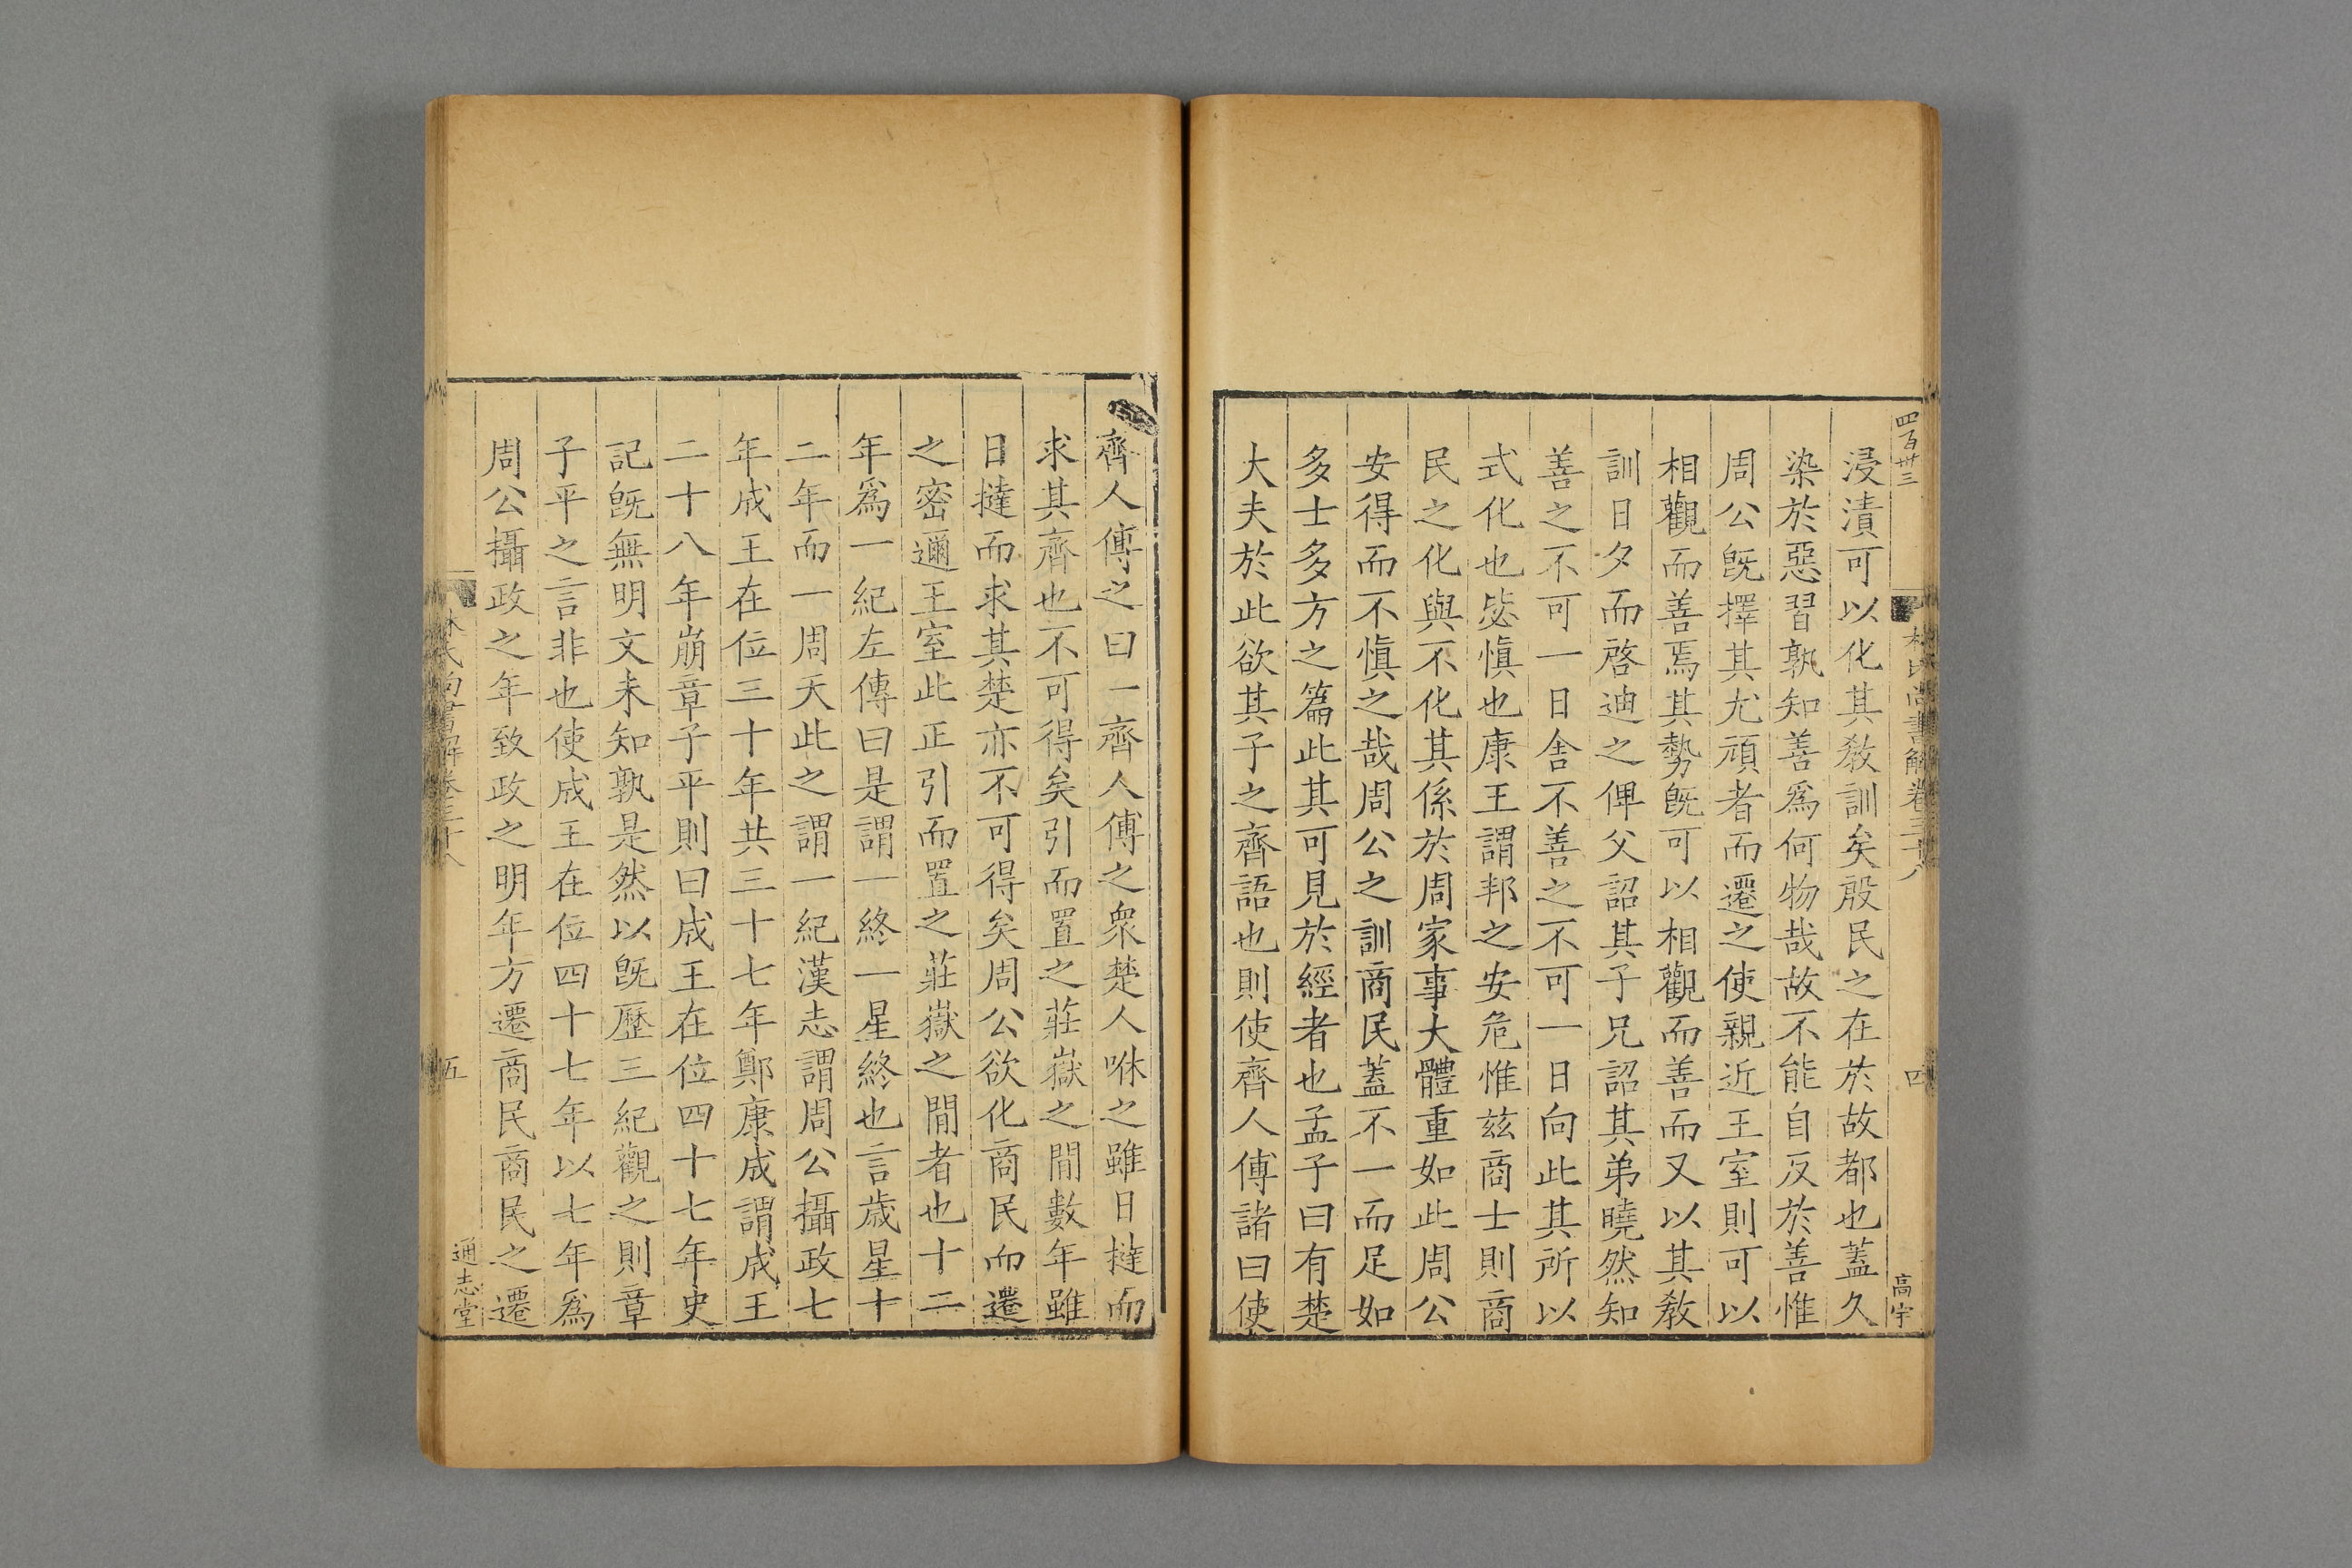 四百卅三
林氏尚書解卷三十八
四
高宇
浸漬可以化其敎訓矣殷民之在於故都也蓋久
染於惡習孰知善爲何物哉故不能自反於善惟
周公旣擇其尤頑者而遷之使親近王室則可以
相觀而善焉其勢旣可以相觀而善而又以其敎
訓日夕而啓迪之俾父詔其子兄詔其弟曉然知
善之不可一日舍不善之不可一日向此其所以
式化也毖愼也康王謂邦之安危惟茲商士則商
民之化與不化其係於周家事大體重如此周公
安得而不愼之哉周公之訓商民蓋不一而足如
多士多方之篇此其可見於經者也孟子曰有楚
大夫於此欲其子之齊語也則使齊人傅諸曰使
齊人傅之曰一齊人傅之衆楚人咻之雖日撻而
求其齊也不可得矣引而置之莊嶽之閒數年雖
日撻而求其楚亦不可得矣周公欲化商民而遷
之密邇王室此正引而置之莊嶽之閒者也十二
年爲一紀左傳曰是謂一終一星終也言歲星十
二年而一周天此之謂一紀漢志謂周公攝政七
年成王在位三十年共三十七年鄭康成謂成王
二十八年崩章子平則曰成王在位四十七年史
記旣無明文未知孰是然以旣歷三紀觀之則章
子平之言非也使成王在位四十七年以七年爲
周公攝政之年致政之明年方遷商民商民之遷
林氏尚書解卷三十八
五
通志堂